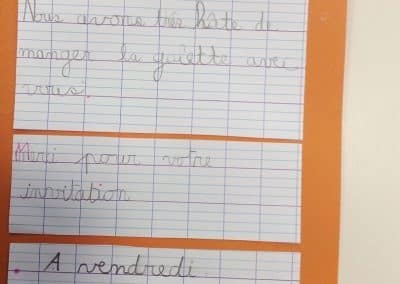 Nous avons très hâte de
manger la guiette avec
vous.
Merci pour votre
invitation
A vendredi.